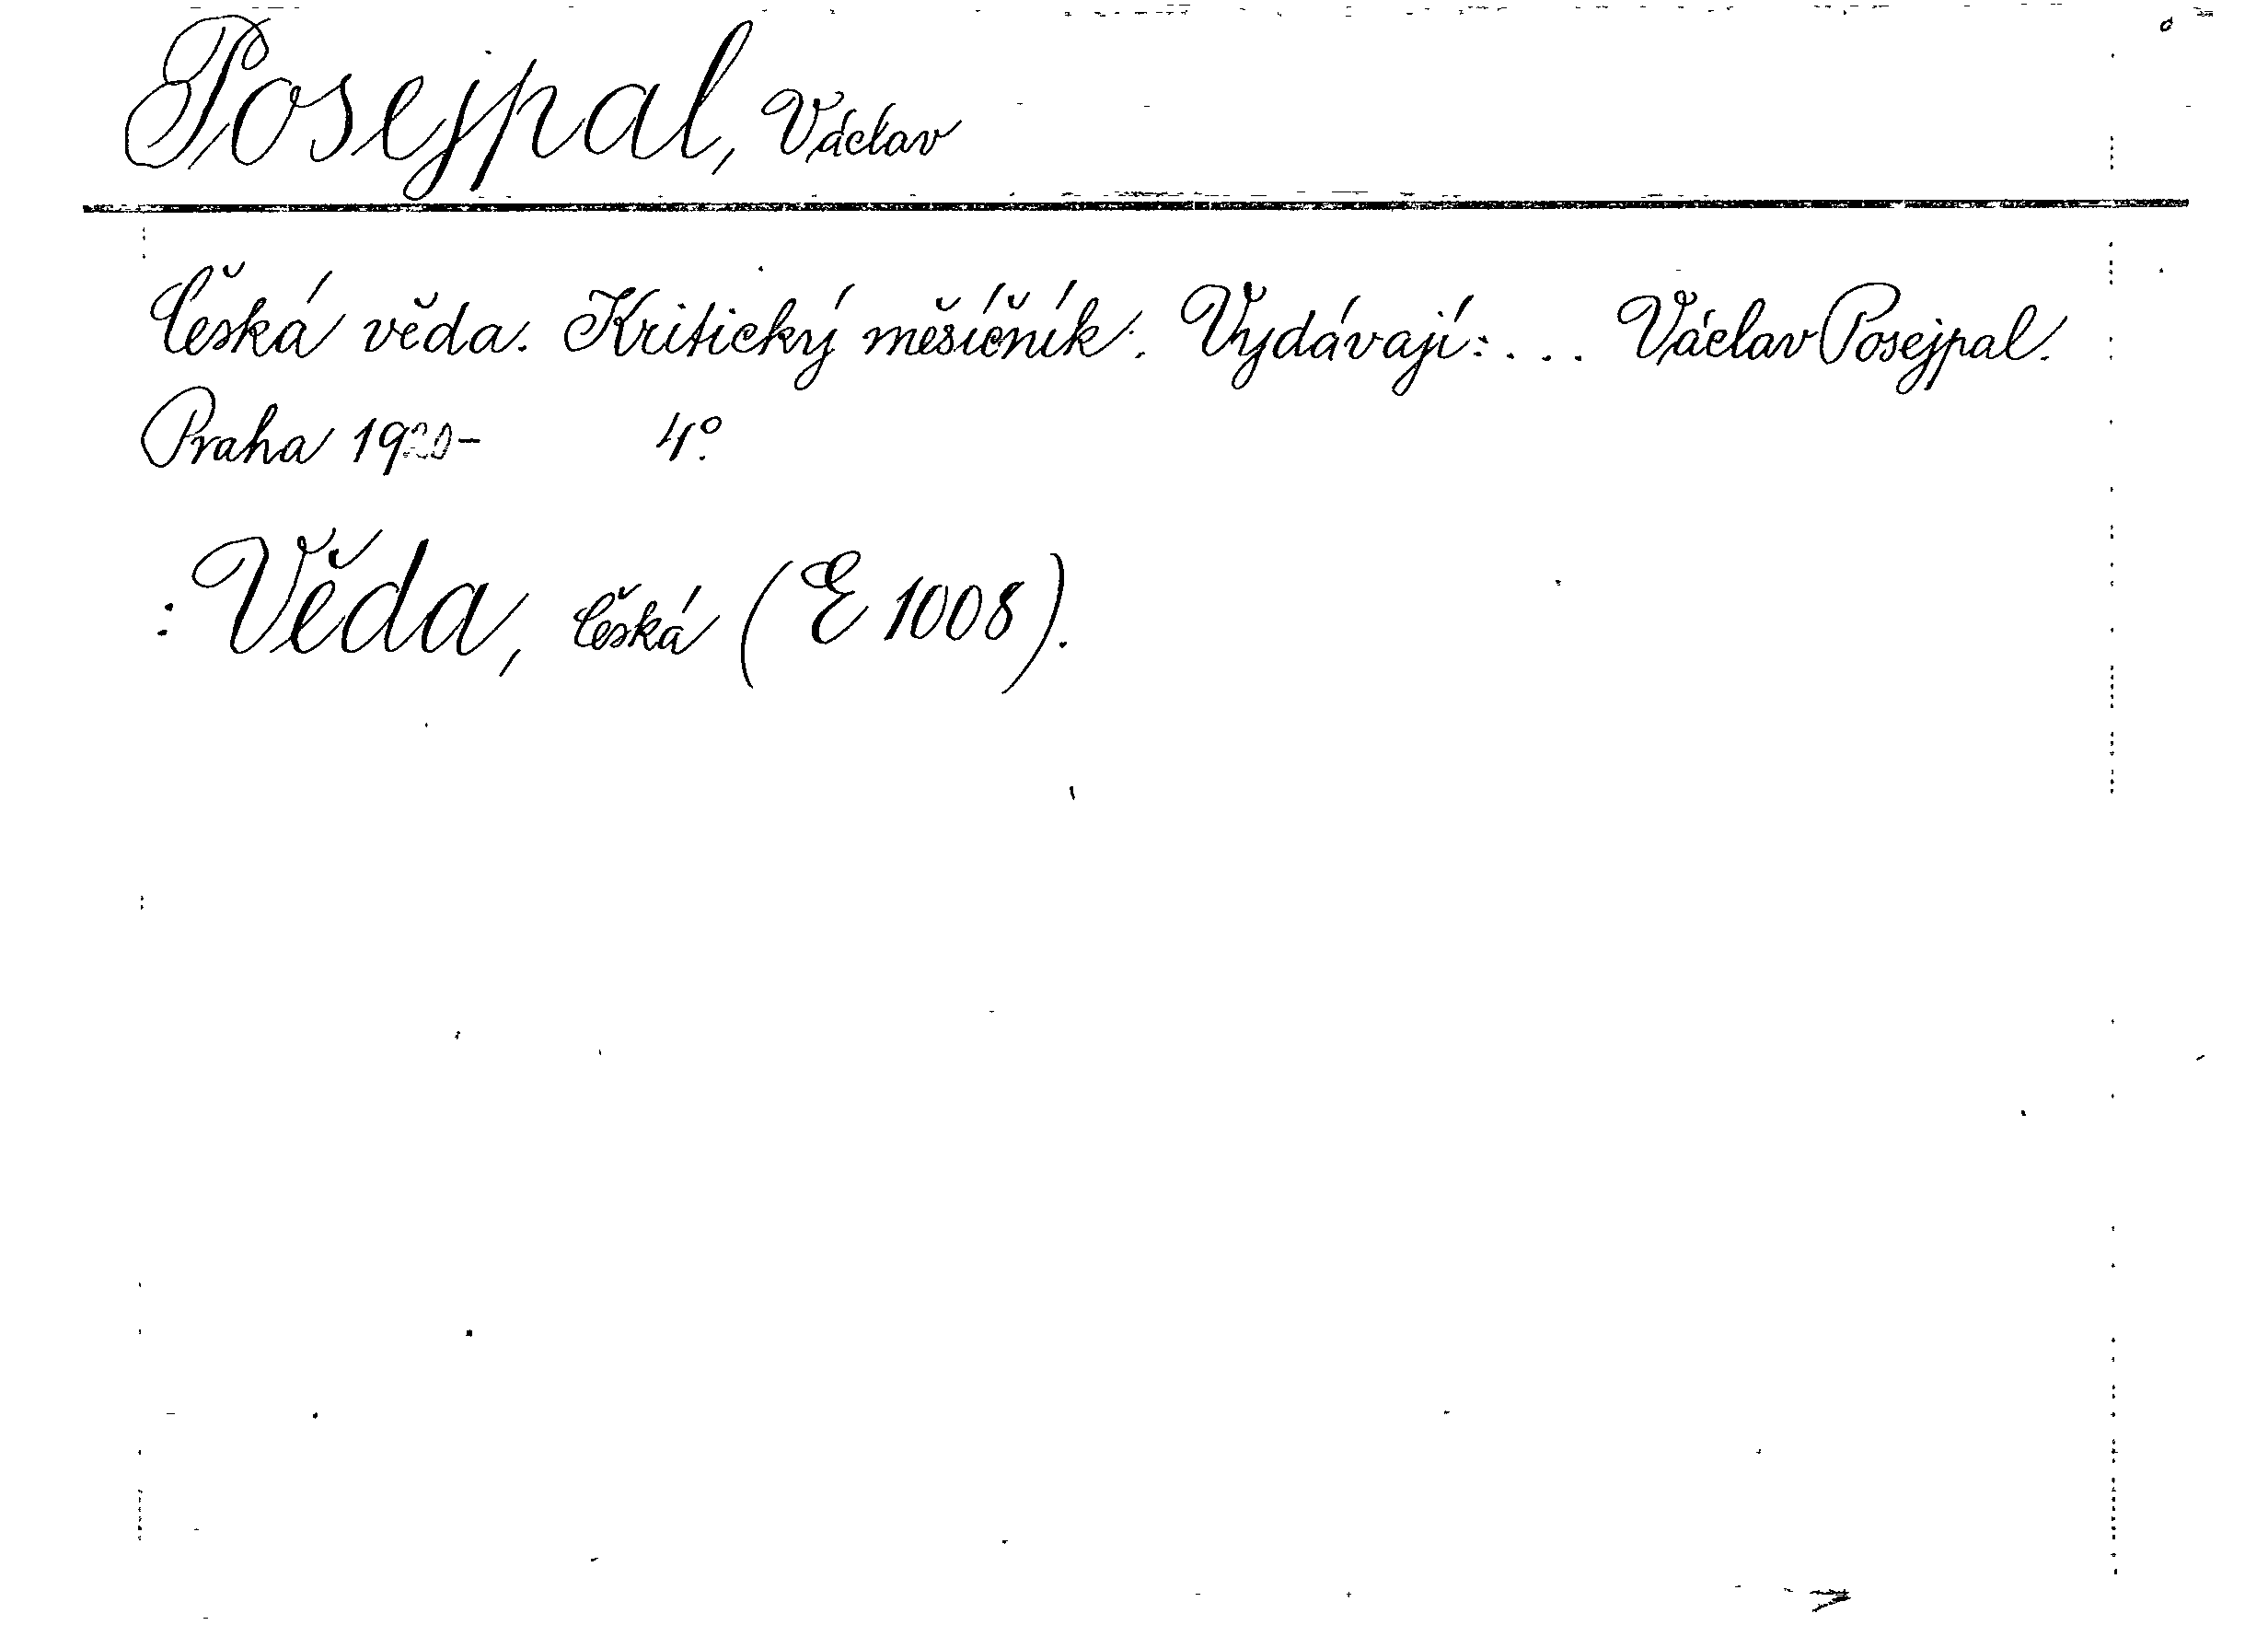 Posejpal, Václav
Česká věda. Kritický měsíčník. Vydávají:... Václav Posejpal.
Praha 1920- 4°.
: Věda, česká (E 1008).